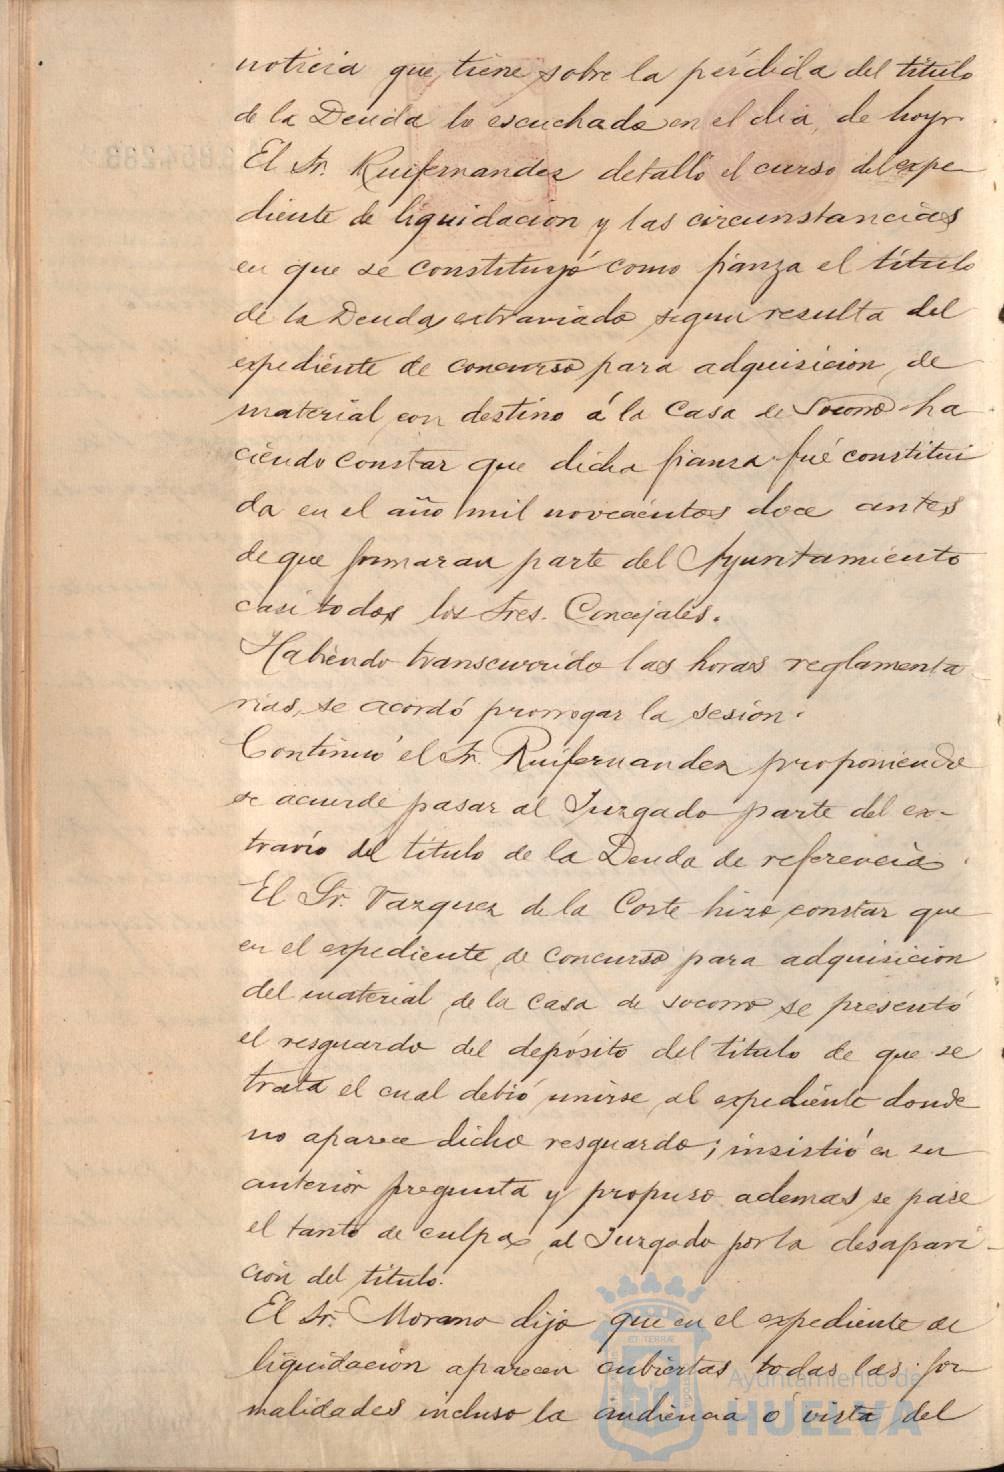 noticia que tiene sobre la pérdida del título
de la Deuda lo escuchado en el dia de hoy.
El Sr. Ruifernandez detalló el curso del expe
diente de liquidacion y las circunstancias
en que se constituyó como fianza el título
de la Deuda extraviado segun resulta del
expediente de concurso para adquisicion de
material con destino á la Casa de Socorro ha
ciendo constar que dicha fianza fué constitui
da en el año mil novecientos doce antes
de que formaran parte del Ayuntamiento
casi todos los Sres. Concejales.
Habiendo transcurrido las horas reglamenta
rias, se acordó prorrogar la sesión.
Continuó el Sr. Ruifernandez proponiendo
se acuerde pasar al Juzgado parte del ex-
travío del título de la Deuda de referencia.
El Sr. Vazquez de la Corte hizo constar que
en el expediente de concurso para adquisicion
del material de la casa de socorro se presentó
el resguardo del depósito del título de que se
trata el cual debió unirse al expediente donde
no aparece dicho resguardo; insistió en su
anterior pregunta y propuso ademas se pase
el tanto de culpa al Juzgado por la desapari-
ción del título.
El Sr. Morano dijo que en el expediente de
liquidación aparecen cubiertas todas las for
malidades incluso la audiencia ó vista del
Ayuntamiento de
HUELVA